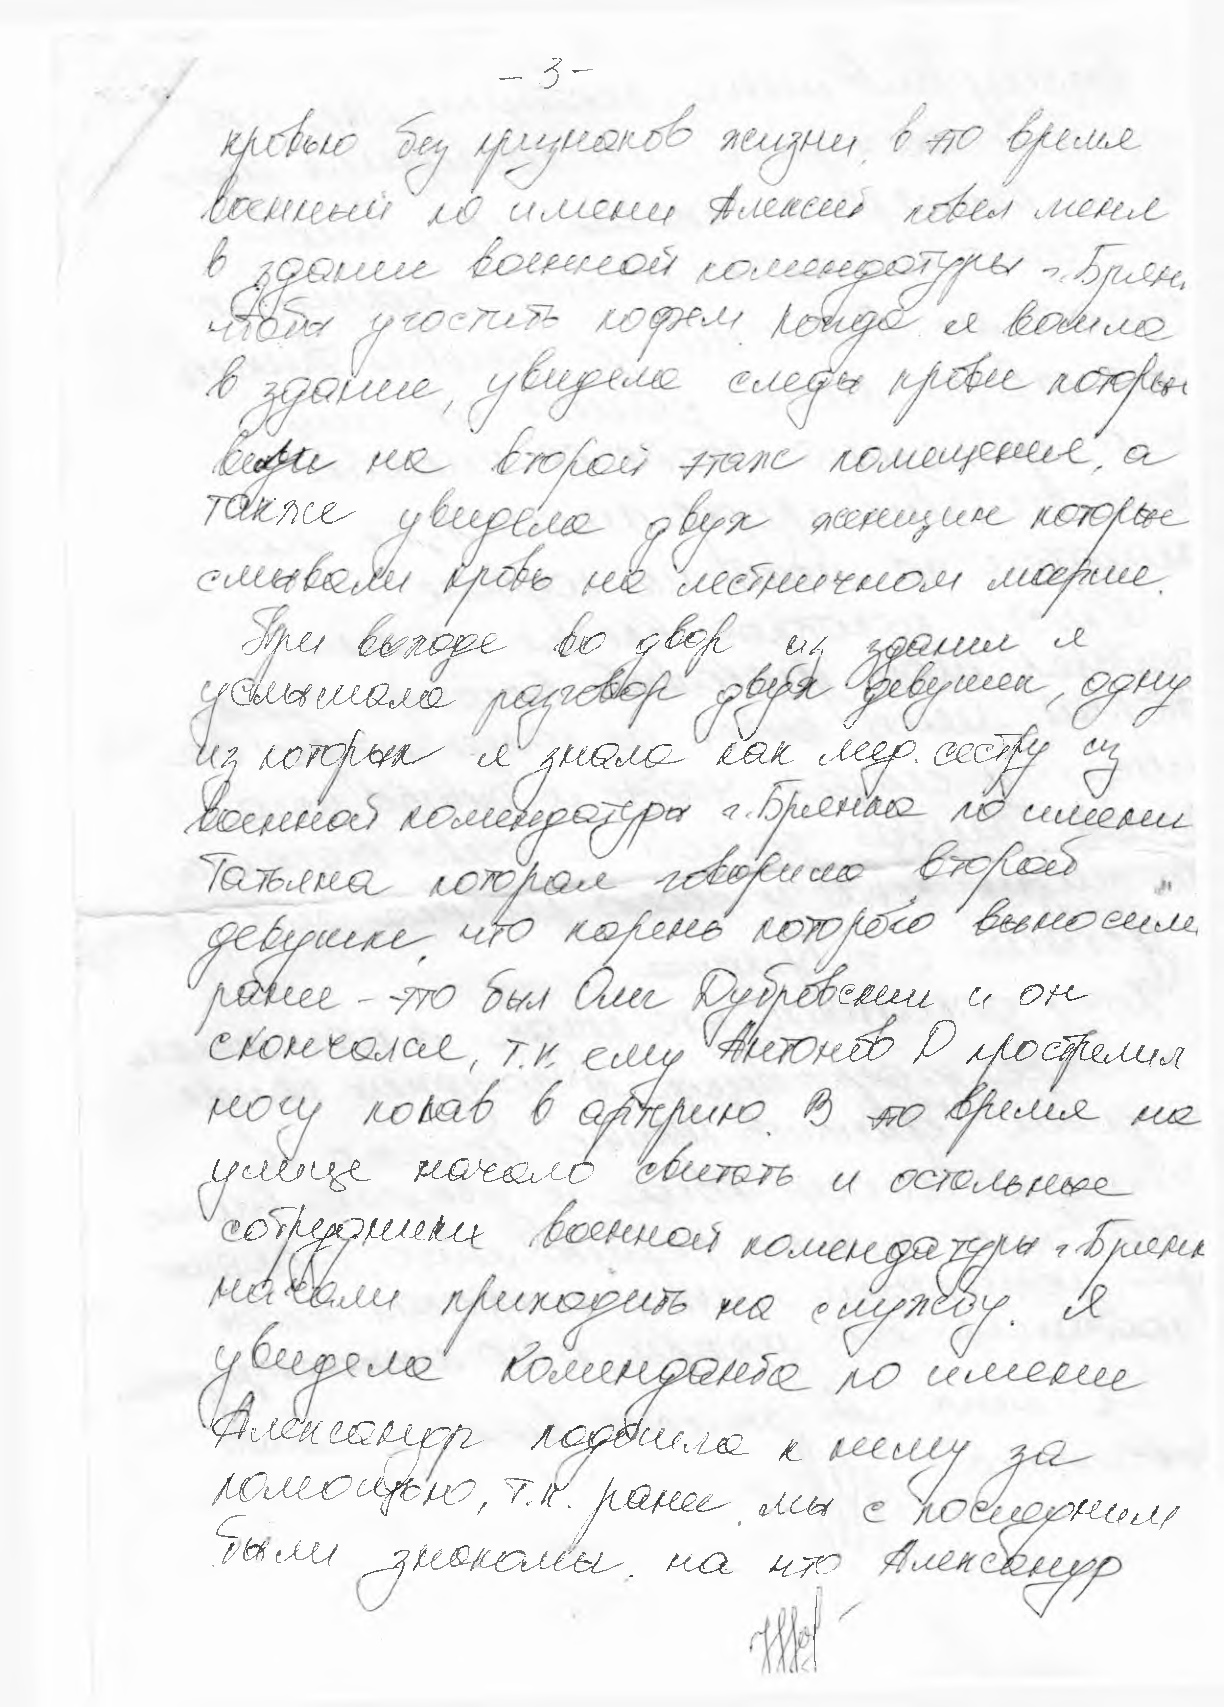 - 3 -
кровью без признаков жизни, в то время
военный по имени Алексей повел меня
в здание военной комендатуры г. Брян.
чтобы угостить кофем. Когда я вошла
в здание, увидела следы крови которые
вели на второй этаж помещения, а
также увидела двух женщин которые
смывали кровь на лестничном марше.
При выходе во двор из здания я
услышала разговор двух девушек, одну
из которых я знала как мед. сестру из
военной комендатуры г. Брянка по имени
Татьяна которая говорила второй
девушке, что парень которого выносили
ранее - это был Олег Дубровский и он
скончался, т.к. ему Антонов Д прострелил
ногу попав в артерию. В то время на
улице начало светать и остальные
сотрудники военной комендатуры г. Брянк
начали приходить на службу. Я
увидела Коменданта по имени
Александр подошла к нему за
помощью, т.к. ранее мы с последним
были знакомы, на что Александр